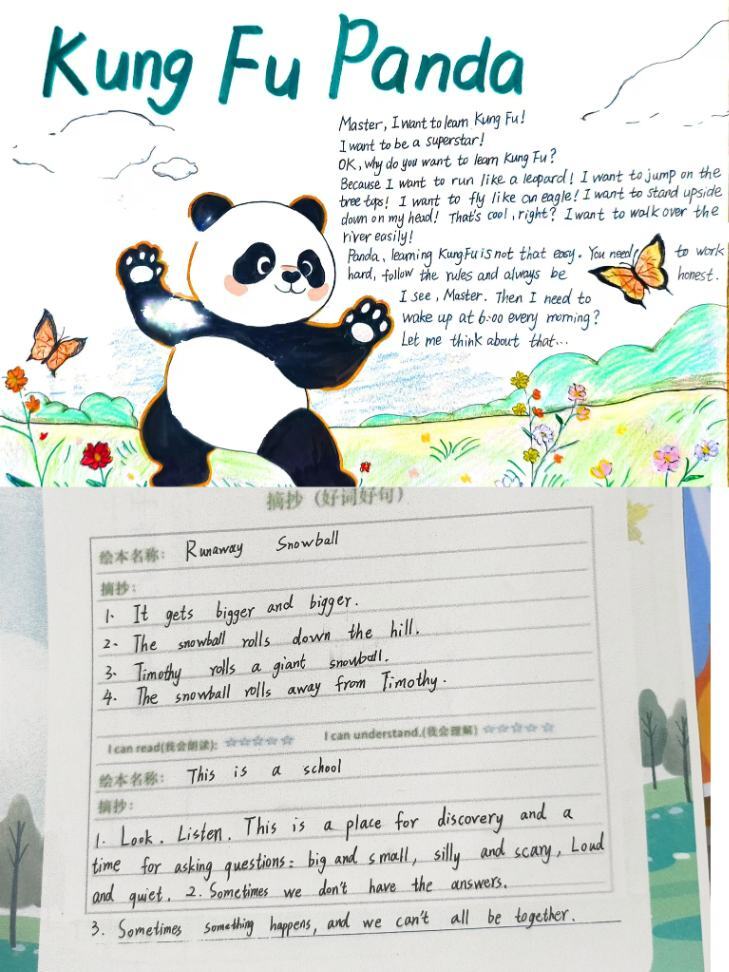 Kung Fu Panda
Master, I want to learn Kung Fu!
I want to be a superstar!
OK, why do you want to learn Kung Fu?
Because I want to run like a leopard! I want to jump on the
tree tops! I want to fly like an eagle! I want to stand upside
down on my head! That's cool, right? I want to walk over the
river easily!
Panda, learning Kung Fu is not that easy. You need to work
hard, follow the rules and always be honest.
I see, Master. Then I need to
wake up at 6:00 every morning?
Let me think about that...
摘抄（好词好句）
绘本名称： Runaway Snowball
摘抄：
1. It gets bigger and bigger.
2. The snowball rolls down the hill.
3. Timothy rolls a giant snowball.
4. The snowball rolls away from Timothy.
I can read(我会朗读): ☆☆☆☆☆ I can understand.(我会理解) ☆☆☆☆☆
绘本名称： This is a school
摘抄：
1. Look. Listen. This is a place for discovery and a
time for asking questions: big and small, silly and scary, Loud
and quiet. 2. Sometimes we don't have the answers.
3. Sometimes something happens, and we can't all be together.